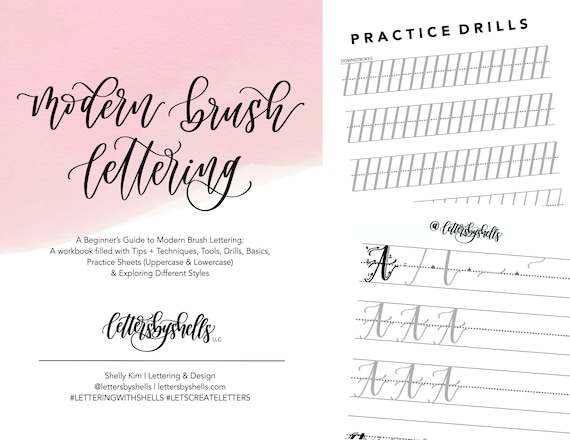 modern brush
lettering
A Beginner's Guide to Modern Brush Lettering:
A workbook filled with Tips + Techniques, Tools, Drills, Basics,
Practice Sheets (Uppercase & Lowercase)
& Exploring Different Styles
lettersbyshells LLC
Shelly Kim | Lettering & Design
@lettersbyshells | lettersbyshells.com
#LETTERINGWITHSHELLS #LETSCREATELETTERS
PRACTICE DRILLS
DOWNSTROKES
@lettersbyshells
A
A A A
A A A